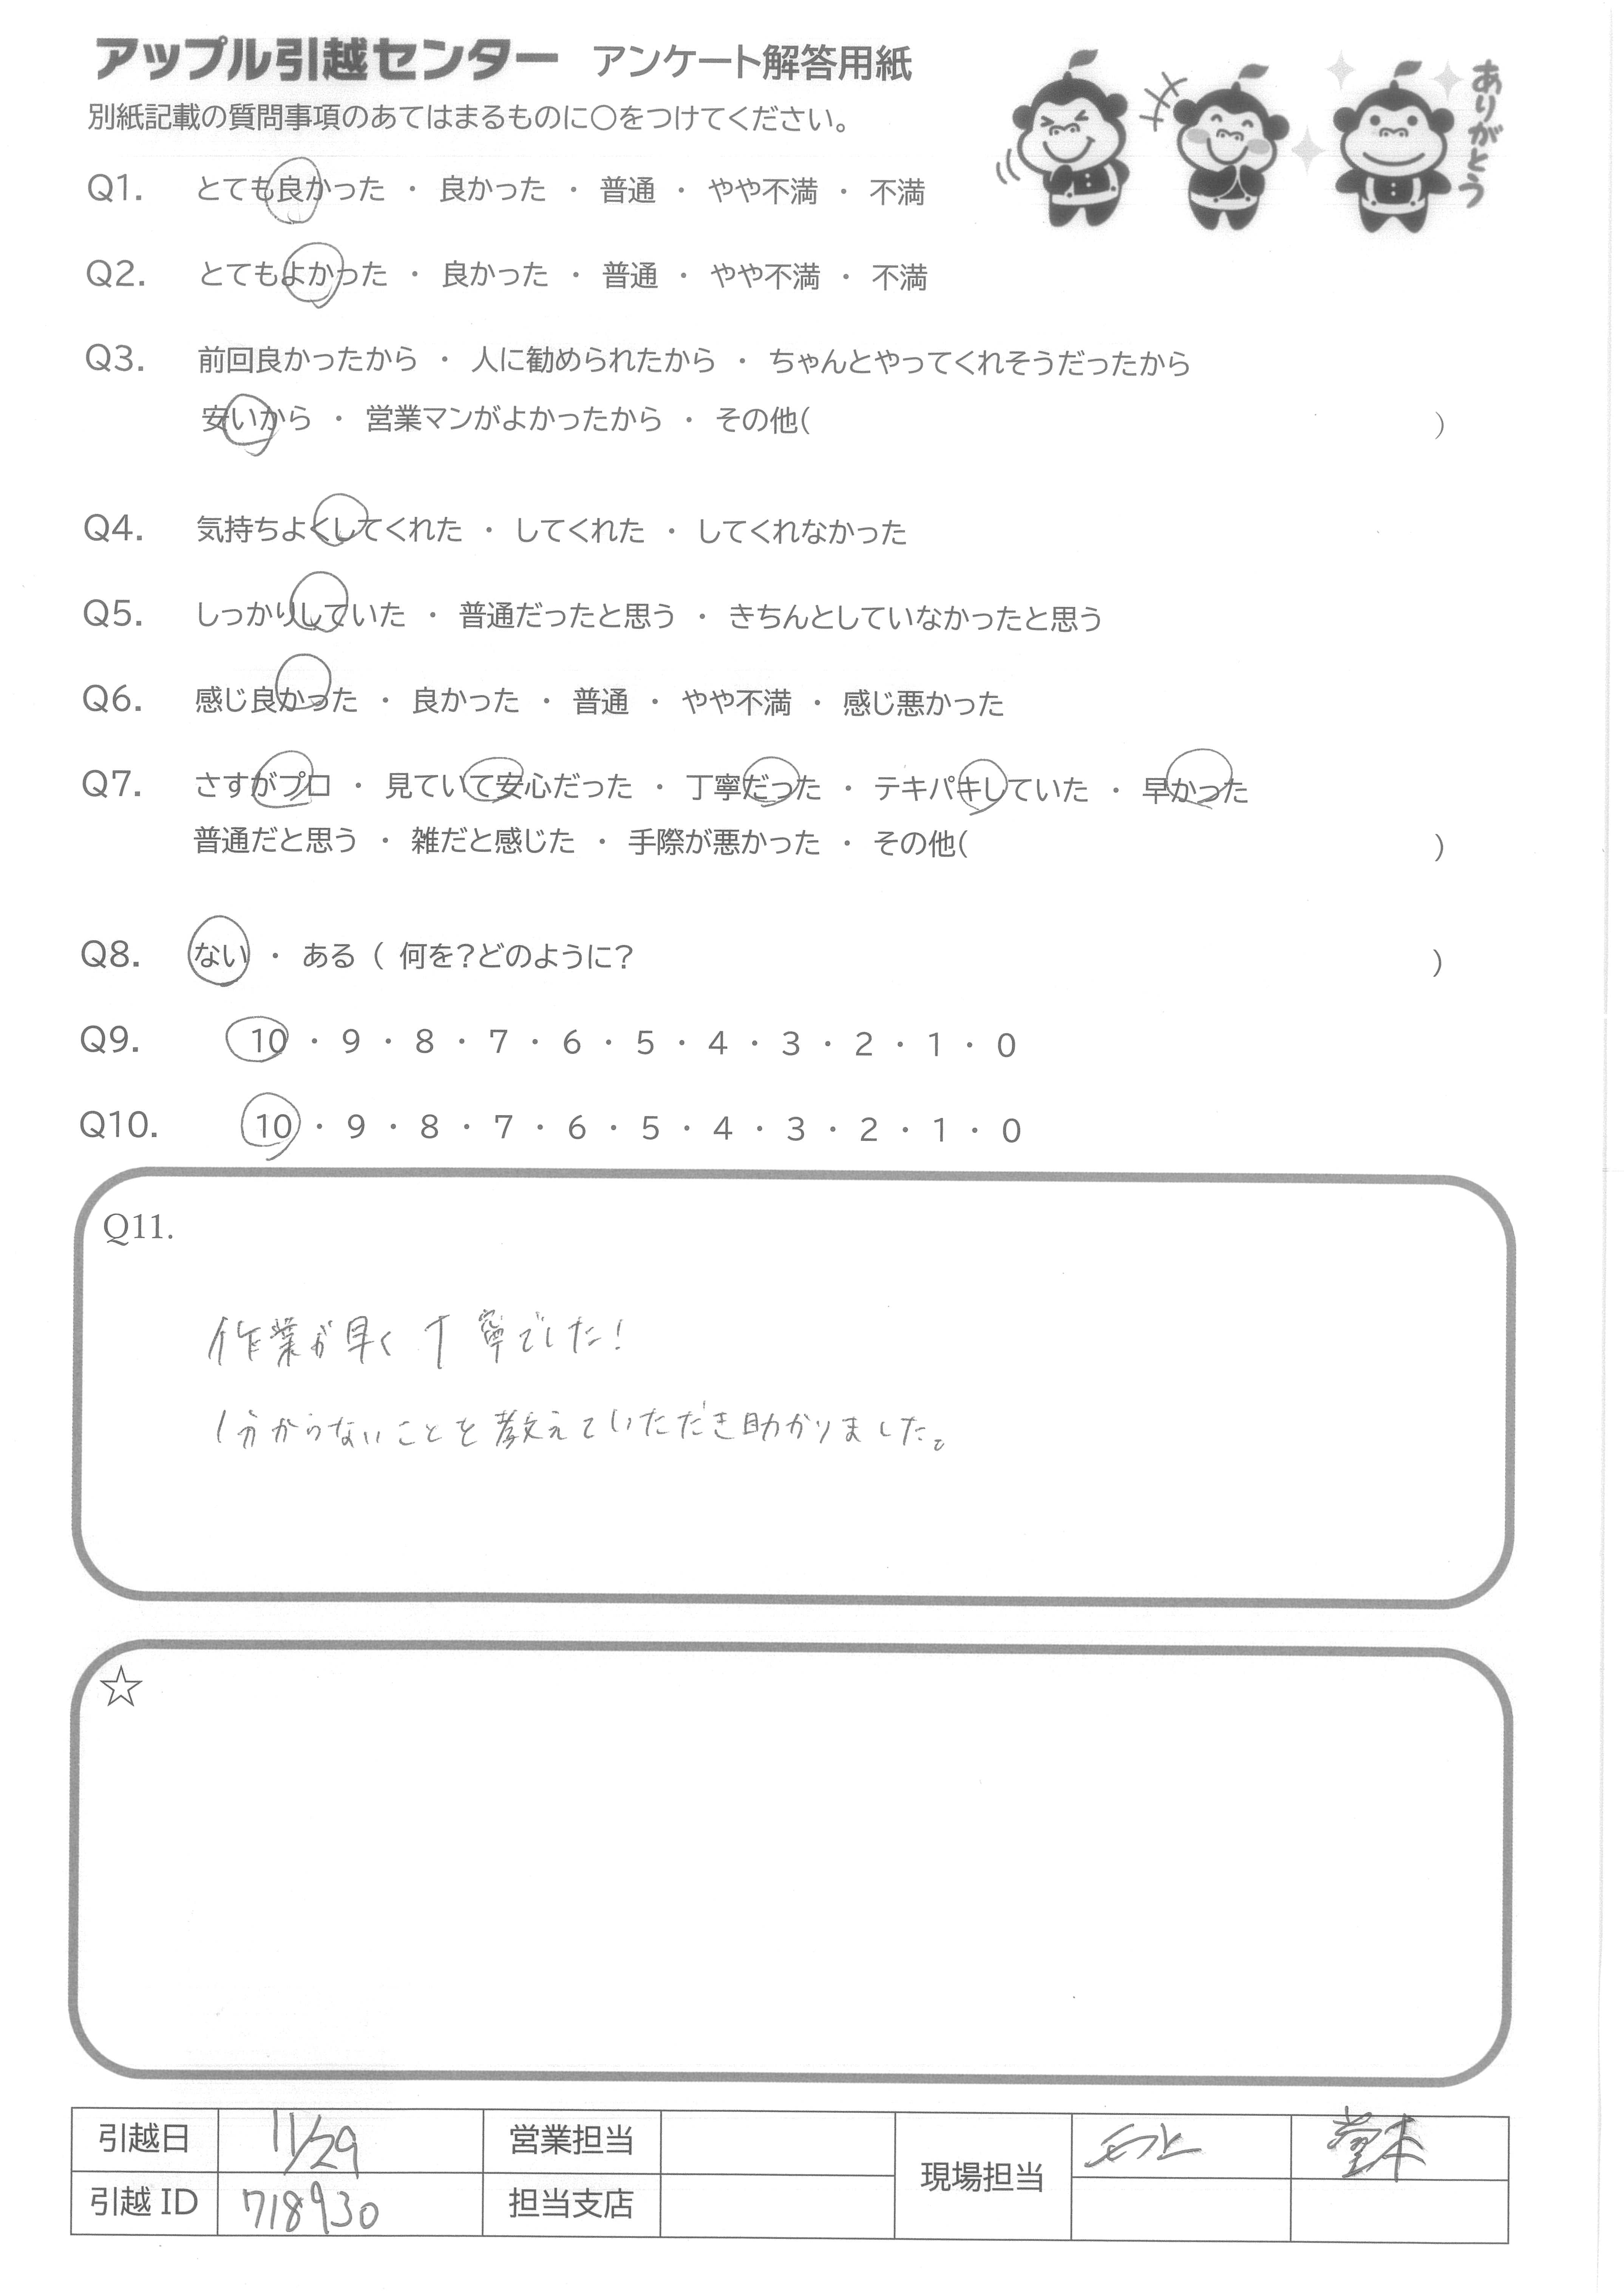 アップル引越センター アンケート解答用紙
ありがとう
別紙記載の質問事項のあてはまるものに○をつけてください。
Q1. とても良かった ・ 良かった ・ 普通 ・ やや不満 ・ 不満
Q2. とてもよかった ・ 良かった ・ 普通 ・ やや不満 ・ 不満
Q3. 前回良かったから ・ 人に勧められたから ・ ちゃんとやってくれそうだったから
安いから ・ 営業マンがよかったから ・ その他( )
Q4. 気持ちよくしてくれた ・ してくれた ・ してくれなかった
Q5. しっかりしていた ・ 普通だったと思う ・ きちんとしていなかったと思う
Q6. 感じ良かった ・ 良かった ・ 普通 ・ やや不満 ・ 感じ悪かった
Q7. さすがプロ ・ 見ていて安心だった ・ 丁寧だった ・ テキパキしていた ・ 早かった
普通だと思う ・ 雑だと感じた ・ 手際が悪かった ・ その他( )
Q8. ない ・ ある ( 何を?どのように? )
Q9. 10 ・ 9 ・ 8 ・ 7 ・ 6 ・ 5 ・ 4 ・ 3 ・ 2 ・ 1 ・ 0
Q10. 10 ・ 9 ・ 8 ・ 7 ・ 6 ・ 5 ・ 4 ・ 3 ・ 2 ・ 1 ・ 0
Q11.
作業が早く丁寧でした!
分からないことを教えていただき助かりました。
☆
引越日 11/29 営業担当 現場担当 堂本
引越 ID 718930 担当支店